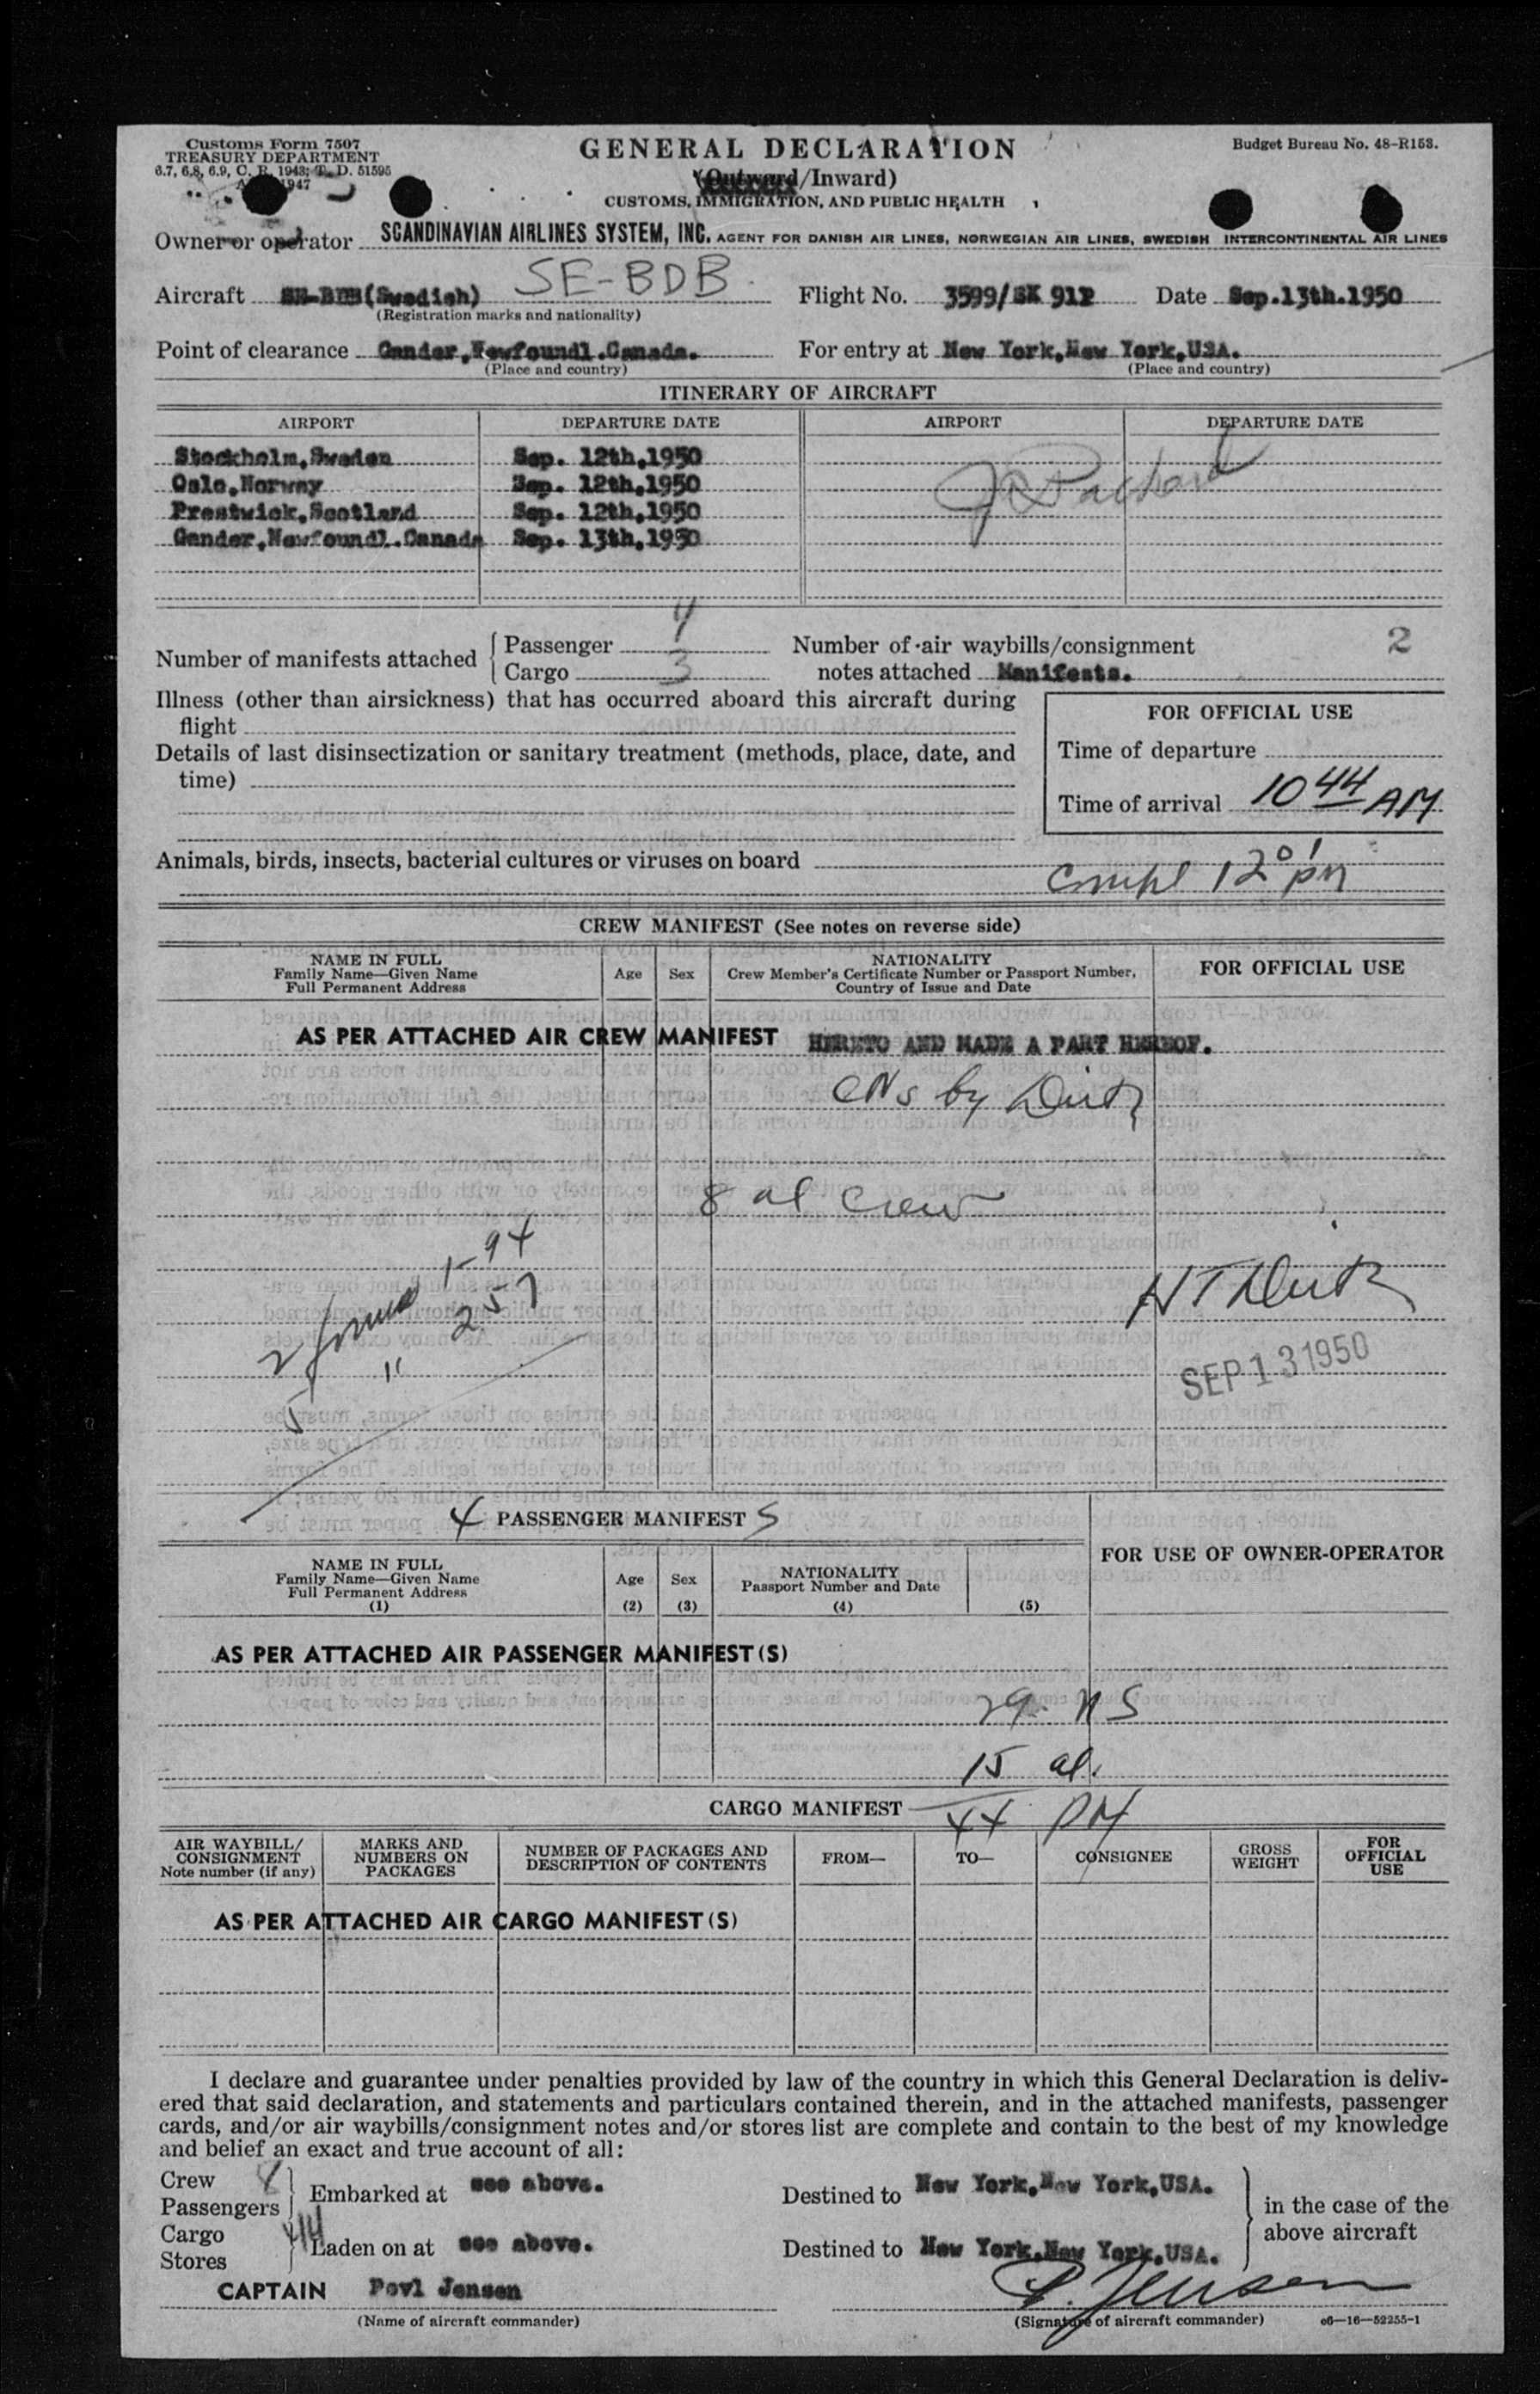 Customs Form 7507
TREASURY DEPARTMENT
6.7, 6.8, 6.9, C. R. 1943; T. D. 51595
1947
GENERAL DECLARATION
(Outward/Inward)
CUSTOMS, IMMIGRATION, AND PUBLIC HEALTH
Budget Bureau No. 48-R153.
Owner or operator SCANDINAVIAN AIRLINES SYSTEM, INC. AGENT FOR DANISH AIR LINES, NORWEGIAN AIR LINES, SWEDISH INTERCONTINENTAL AIR LINES
Aircraft SE-BDB(Swedish) SE-BDB Flight No. 3599/SK 912 Date Sep.13th.1950
(Registration marks and nationality)
Point of clearance Gander,Newfoundl.Canada. For entry at New York,New York,USA.
(Place and country) (Place and country)
ITINERARY OF AIRCRAFT
AIRPORT DEPARTURE DATE AIRPORT DEPARTURE DATE
Stockholm,Sweden Sep. 12th,1950
Oslo,Norway Sep. 12th,1950
Prestwick,Scotland Sep. 12th,1950
Gander,Newfoundl.Canada Sep. 13th,1950
Number of manifests attached Passenger 4 Number of air waybills/consignment 2
Cargo 3 notes attached Manifests.
Illness (other than airsickness) that has occurred aboard this aircraft during
flight
Details of last disinsectization or sanitary treatment (methods, place, date, and
time)
FOR OFFICIAL USE
Time of departure
Time of arrival 10 44 AM
Animals, birds, insects, bacterial cultures or viruses on board
compl 12 01 pm
CREW MANIFEST (See notes on reverse side)
NAME IN FULL
Family Name—Given Name
Full Permanent Address
Age
Sex
NATIONALITY
Crew Member's Certificate Number or Passport Number,
Country of Issue and Date
FOR OFFICIAL USE
AS PER ATTACHED AIR CREW MANIFEST HERETO AND MADE A PART HEREOF.
by
8 al Crew
2 forms 1-94
5 " 257
SEP 13 1950
4 PASSENGER MANIFEST S
NAME IN FULL
Family Name—Given Name
Full Permanent Address
(1)
Age
(2)
Sex
(3)
NATIONALITY
Passport Number and Date
(4)
(5)
FOR USE OF OWNER-OPERATOR
AS PER ATTACHED AIR PASSENGER MANIFEST(S)
29
15 al.
CARGO MANIFEST 44
AIR WAYBILL/
CONSIGNMENT
Note number (if any)
MARKS AND
NUMBERS ON
PACKAGES
NUMBER OF PACKAGES AND
DESCRIPTION OF CONTENTS
FROM—
TO—
CONSIGNEE
GROSS
WEIGHT
FOR
OFFICIAL
USE
AS PER ATTACHED AIR CARGO MANIFEST(S)
I declare and guarantee under penalties provided by law of the country in which this General Declaration is deliv-
ered that said declaration, and statements and particulars contained therein, and in the attached manifests, passenger
cards, and/or air waybills/consignment notes and/or stores list are complete and contain to the best of my knowledge
and belief an exact and true account of all:
Crew 8
Passengers 44 Embarked at see above. Destined to New York,New York,USA.
in the case of the
above aircraft
Cargo
Stores Laden on at see above. Destined to New York,New York,USA.
CAPTAIN Povl Jensen P. Jensen
(Name of aircraft commander) (Signature of aircraft commander) c6—16—52255-1